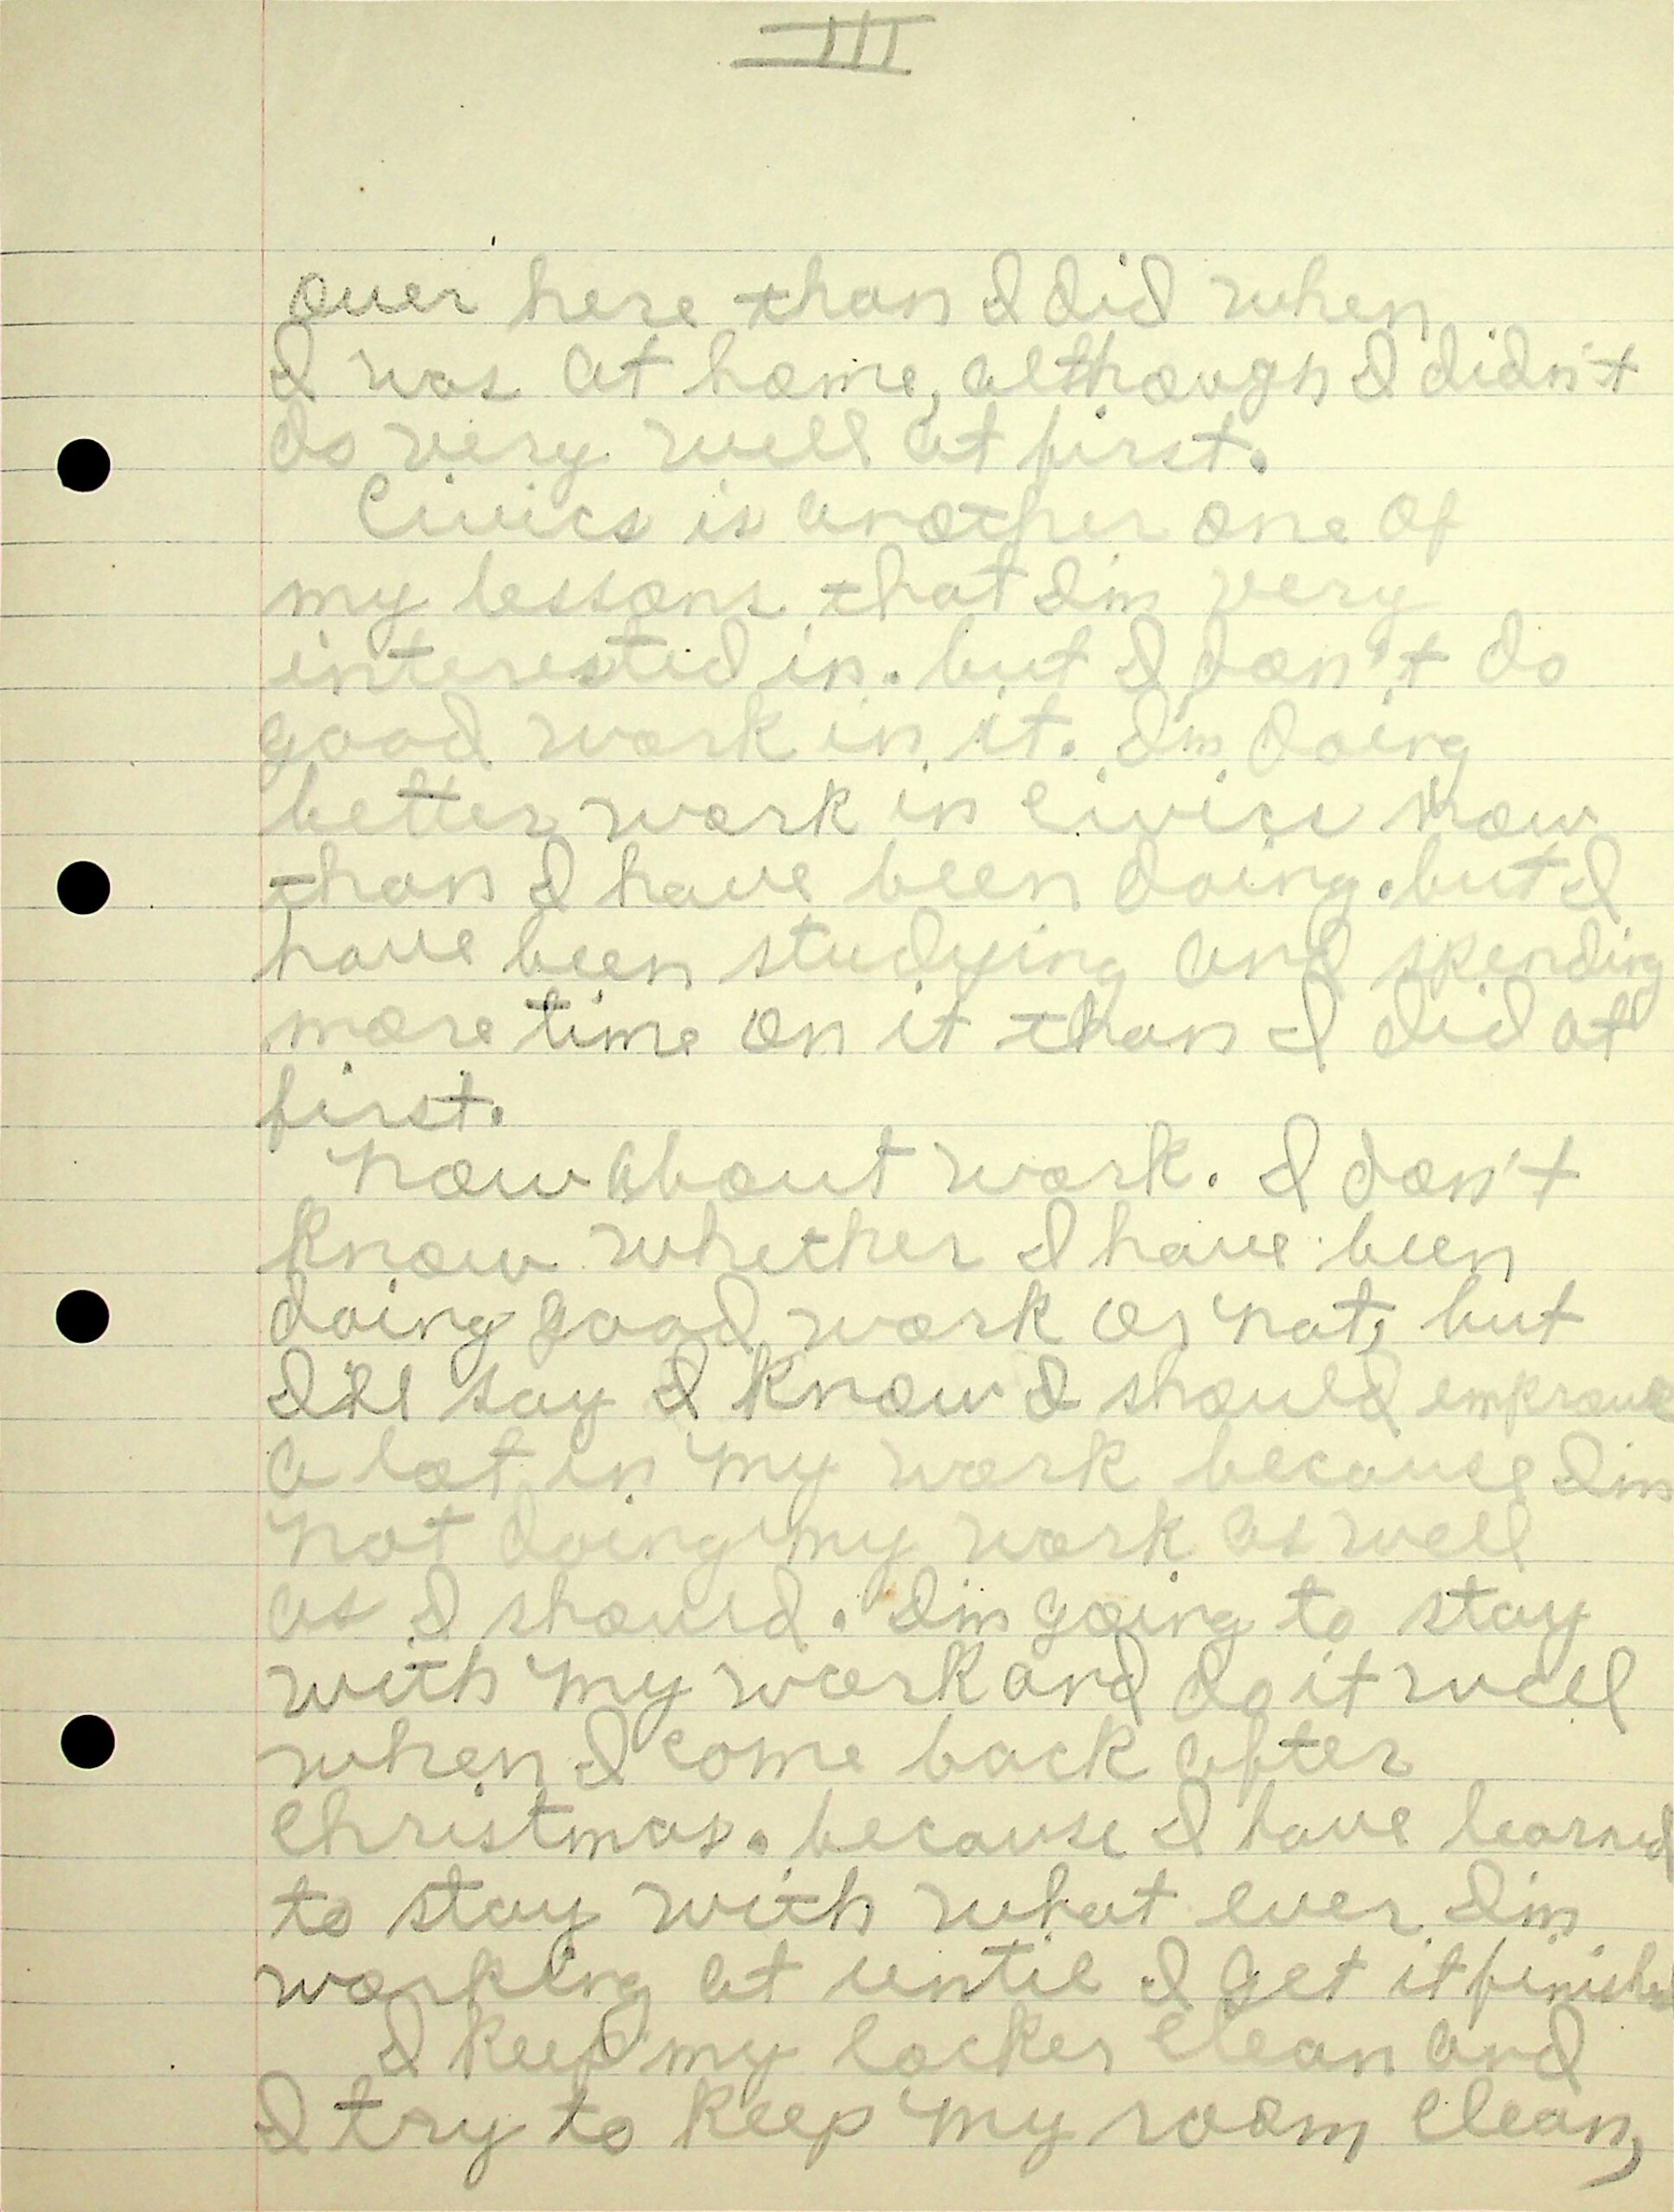 III
over here than I did when
I was at home, although I didn't
do very well at first.
Civics is another one of
my lessons that I'm very
interested in. but I don't do
good work in it. I'm doing
better work in Civics now
than I have been doing. but I
have been studying and spending
more time on it than I did at
first.
Now about work. I don't
know whether I have been
doing good work or not, but
I'll say I know I should emprove
a lot in my work because I'm
not doing my work as well
as I should. I'm going to stay
with my work and do it well
when I come back after
Christmas. because I have learned
to stay with what ever I'm
working at until I get it finished
I keep my locker clean and
I try to keep my room clean,